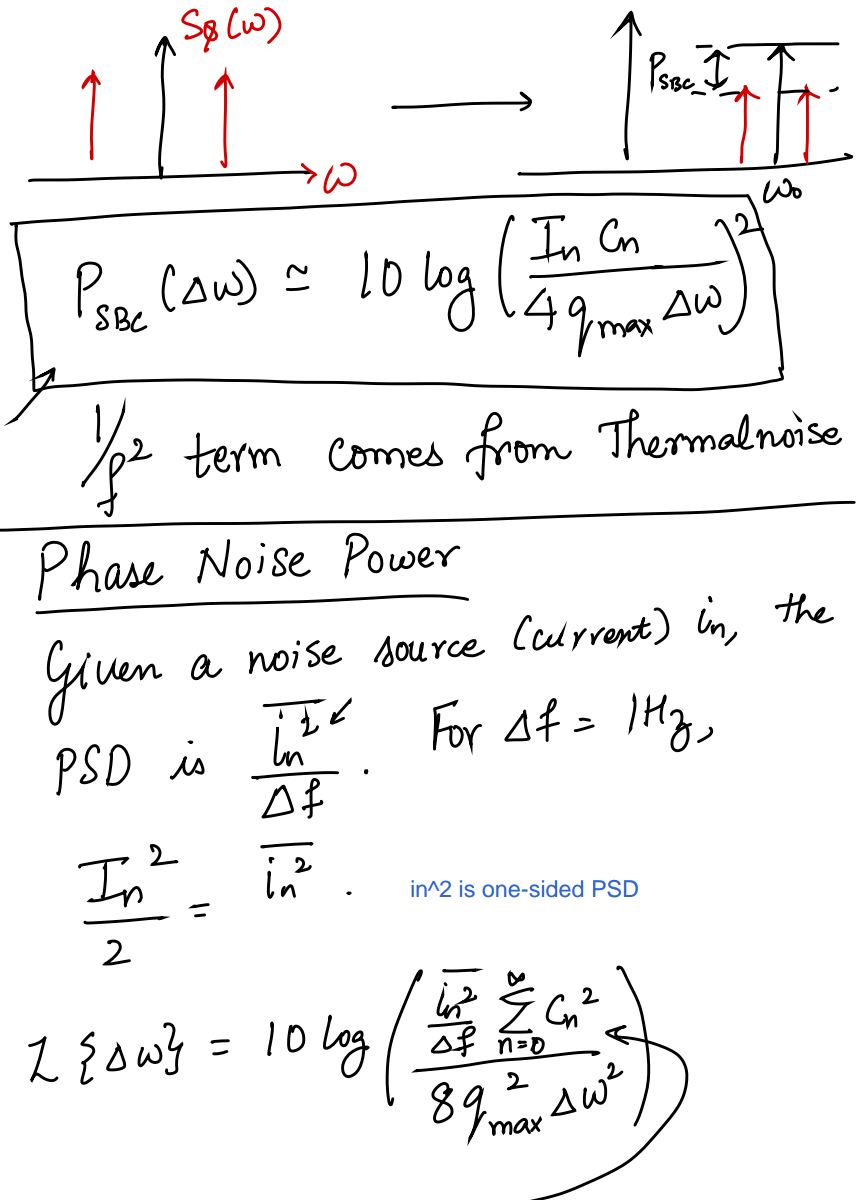 Sφ(ω)
P_SBC
ω
ω₀
P_SBC (Δω) ≃ 10 log (I_n C_n / 4 q_max Δω)²
1/f² term comes from Thermal noise
Phase Noise Power
Given a noise source (current) i_n, the
PSD is \overline{i_n²}/Δf . For Δf = 1Hz,
I_n²/2 = \overline{i_n²} .
in^2 is one-sided PSD
L{Δω} = 10 log ( \overline{i_n²}/Δf ∑_{n=0}^{∞} C_n² / 8 q_max² Δω² )